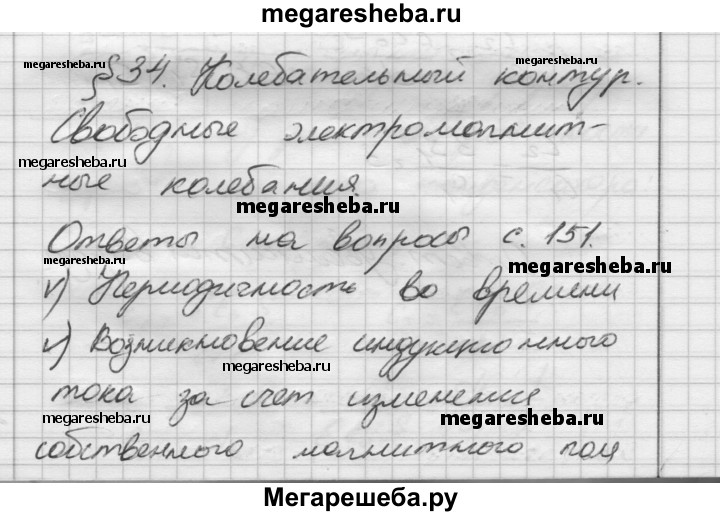 megaresheba.ru
megaresheba.ru
§34. Колебательный контур.
megaresheba.ru
Свободные электромагнит-
megaresheba.ru
ные колебания.
megaresheba.ru
Ответы на вопросы с. 151.
megaresheba.ru
megaresheba.ru
v) Периодичность во времени
v) Возникновение индукционного
megaresheba.ru
тока за счет изменения
megaresheba.ru
megaresheba.ru
собственного магнитного пол
Мегарешеба.ру